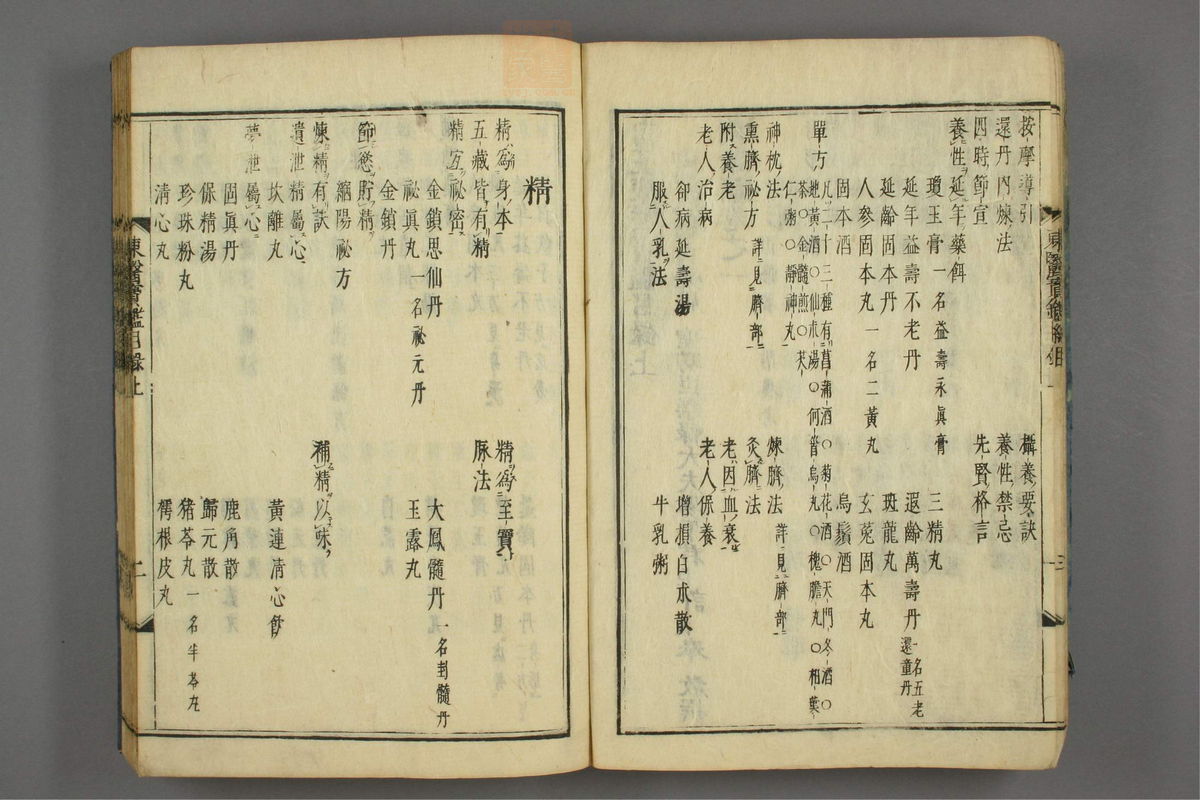 按摩導引
攝養要訣
還丹內煉法
養性禁忌
四時節宣
先賢格言
養性延年藥餌
瓊玉膏一名益壽永眞膏
三精丸
延年益壽不老丹
遐齡萬壽丹一名五老還童丹
延齡固本丹
斑龍丸
人參固本丸一名二黃丸
玄菟固本丸
固本酒
烏鬚酒
單方
凡二十三種有菖蒲酒〇菊花酒〇天門冬酒〇
地黃酒〇仙朮湯〇何首烏丸〇槐膽丸〇柏葉
茶〇金髓煎〇芡
仁粥〇靜神丸
神枕法
煉臍法詳見臍部
熏臍祕方詳見臍部
灸臍法
附養老
老因血衰
老人治病
老人保養
却病延壽湯
增損白朮散
服人乳法
牛乳粥
精
精爲身本
精爲至寶
五藏皆有精
脉法
精宜祕密
金鎖思仙丹
大鳳髓丹一名封髓丹
祕眞丸一名祕元丹
玉露丸
金鎖丹
節慾貯精
縮陽祕方
煉精有訣
補精以味
遺泄精屬心
坎離丸
黃連清心飲
夢泄屬心
固眞丹
鹿角散
保精湯
歸元散
珍珠粉丸
猪苓丸一名半苓丸
清心丸
樗根皮丸
東醫寶鑑總目
三
東醫寶鑑目錄上
二